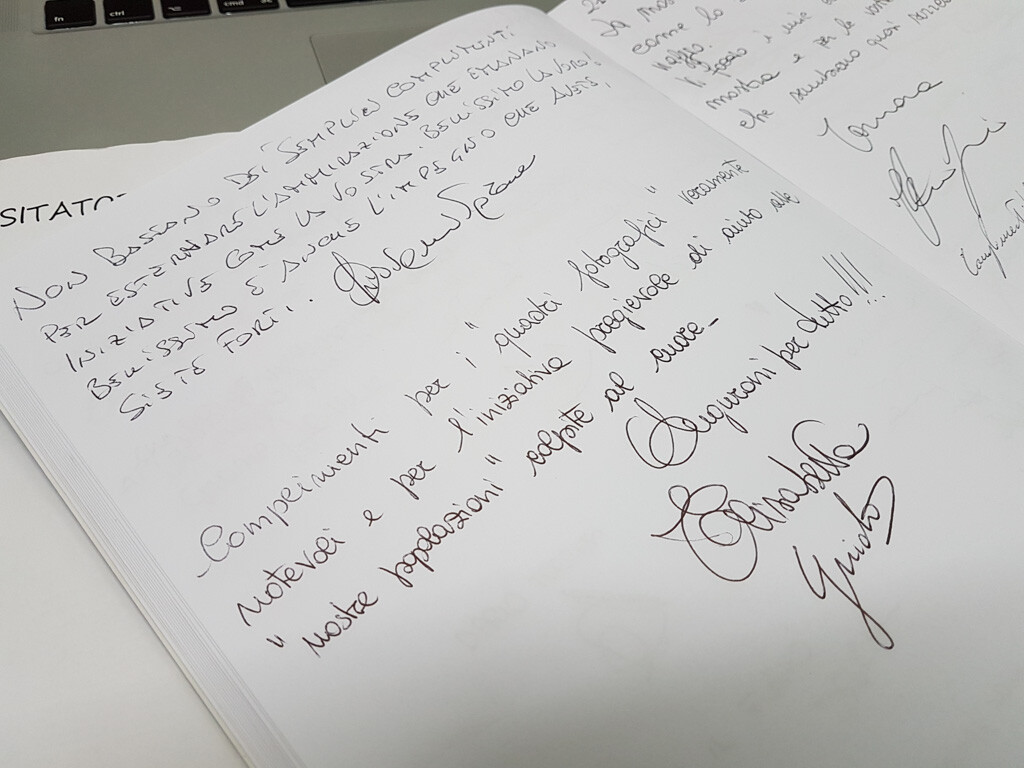 fn
ctrl
cmd
SITATO
NON BASTANO DEI SEMPLICI COMPLIMENTI
PER ESTERNARE L'AMMIRAZIONE CHE EMANANO
INIZIATIVE COME LA VOSTRA. BELLISSIMO LAVORO!
BELLISSIMO È ANCHE L'IMPEGNO CHE AVETE,
SIETE FORTI.
- Complimenti per i "quadri fotografici" veramente
notevoli e per l'iniziativa pregievole di aiuto alle
"nostre popolazioni" colpite al cuore -
Auguroni per tutto!!!
Elisabetta
Guido
La
come lo
mostra e per le
che quasi